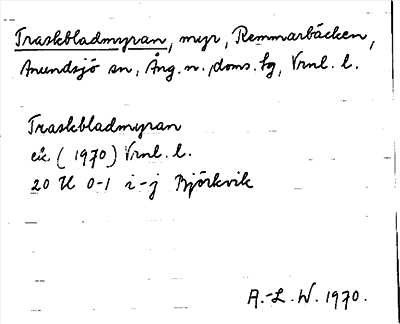 Traskbladmyran, myr, Remmarbäcken,
Anundsjö sn, Ång. n. doms. tg, Vrnl. l.
Traskbladmyran
ek. (1970) Vrnl. l.
20 H 0-1 i-j Björkvik
A.-L. W. 1970.